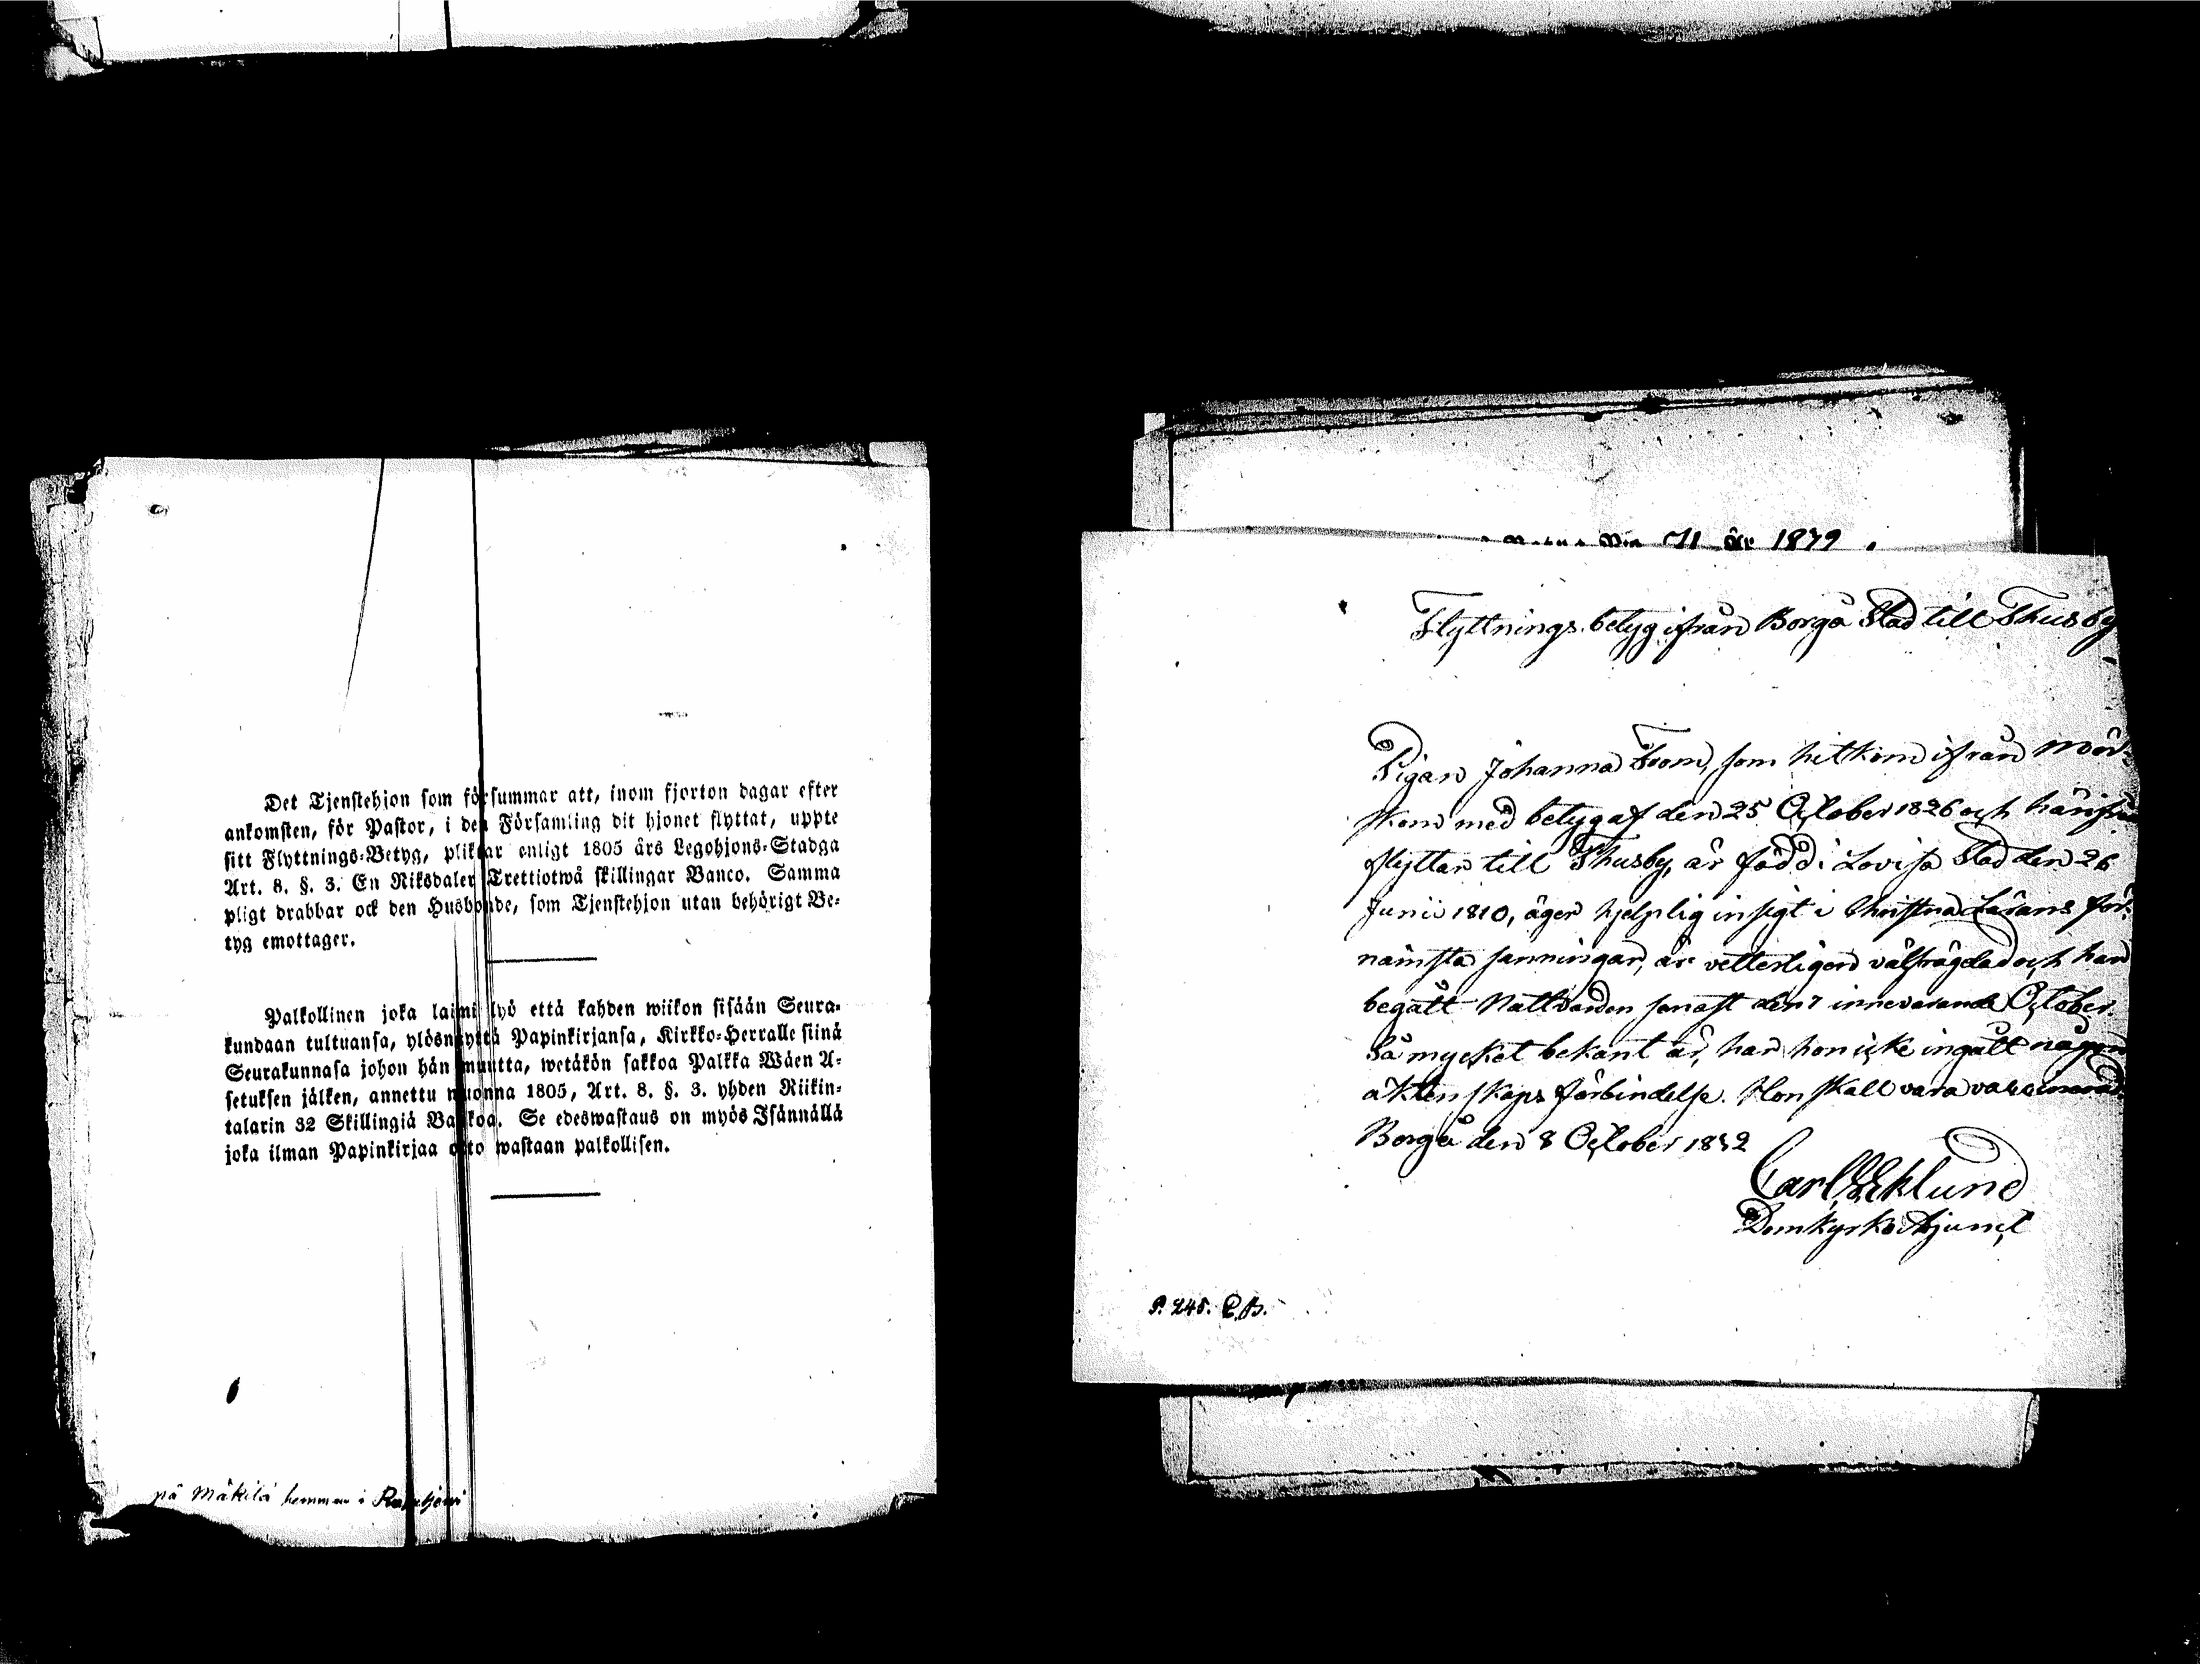 Det Tjenstehjon som försummar att, inom fjorton dagar efter
ankomsten, för Pastor, i den Församling dit hjonet flyttat, uppte
sitt Flyttnings-Betyg, pliktar enligt 1805 års Legohjons-Stadga
Art. 8. §. 3. En Riksdaler Trettiotwå skillingar Banco. Samma
pligt drabbar ock den Husbonde, som Tjenstehjon utan behörigt Be-
tyg emottager.
Palkollinen joka laimi lyö että kahden wiikon sisään Seura-
kundaan tultuansa, ylösnäyttä Papinkirjansa, Kirkko-Herralle siinä
Seurakunnasa johon hän muutta, wetäkön sakkoa Palkka Wäen A-
setuksen jälken, annettu wuonna 1805, Art. 8. §. 3. yhden Riikin-
talarin 32 Skillingiä Bankoa. Se edeswastaus on myös Isännällä
joka ilman Papinkirjaa otto wastaan palkollisen.
på Mäkilä hemman i
71 år 1879
Flyttnings-betyg ifrån Borgå Stad till Thusby
Pigan Johanna From, som hitkom ifrån Mör-
skom med betyg af den 25 October 1826 och härifrån
flyttar till Thusby, är född i Lovisa Stad den 26
Junii 1810, äger hjelplig insigt i Christna Lärans för-
nämsta sanningar, är vetterligen välfrägdad och har
begått Nattvarden senast den 7 innevarande October.
Så mycket bekant är, har hon icke ingått någon
äktenskaps förbindelse. Hon skall vara vaccinerad.
Borgå den 8 October 1832
Carl Eklund
Domkyrko Adjunct
P. 248. C.B.